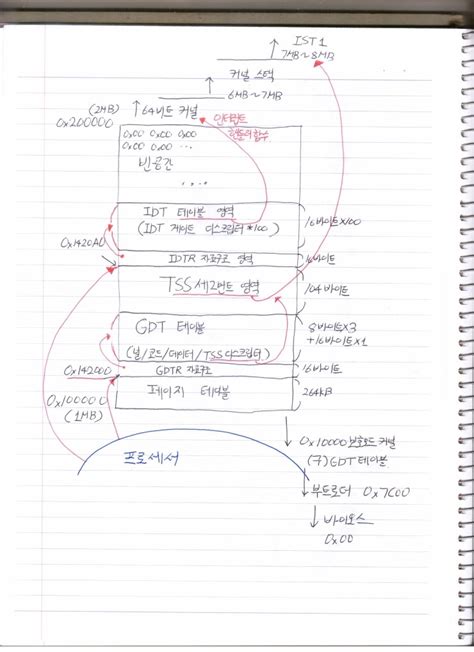 IST1
7MB~8MB
커널 스택
6MB~7MB
(2MB)
0x200000
64비트 커널
인터럽트
핸들러함수
0x00 0x00 0x00
0x00 0x00 ...
빈공간
...
IDT 테이블 영역
(IDT 게이트 디스크립터*100)
16바이트x100
0x1420A0
IDTR 자료구조 영역
16바이트
TSS 세그먼트 영역
104바이트
GDT 테이블
(널/코드/데이터/TSS디스크립터)
8바이트x3
+16바이트x1
0x142000
GDTR 자료구조
16바이트
0x100000
(1MB)
페이지 테이블
264kB
프로세서
0x10000 보호모드 커널
(구)GDT테이블
부트로더 0x7C00
바이오스
0x00